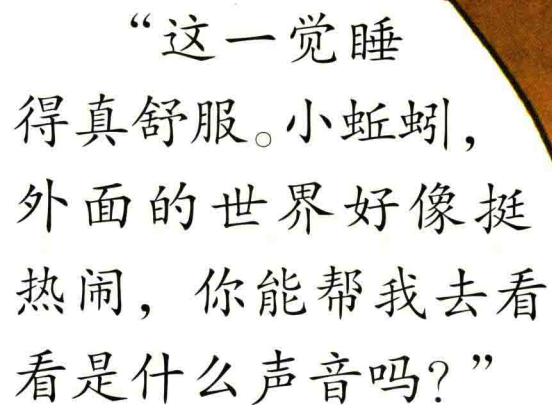 “这一觉睡
得真舒服。小蚯蚓，
外面的世界好像挺
热闹，你能帮我去看
看是什么声音吗？”